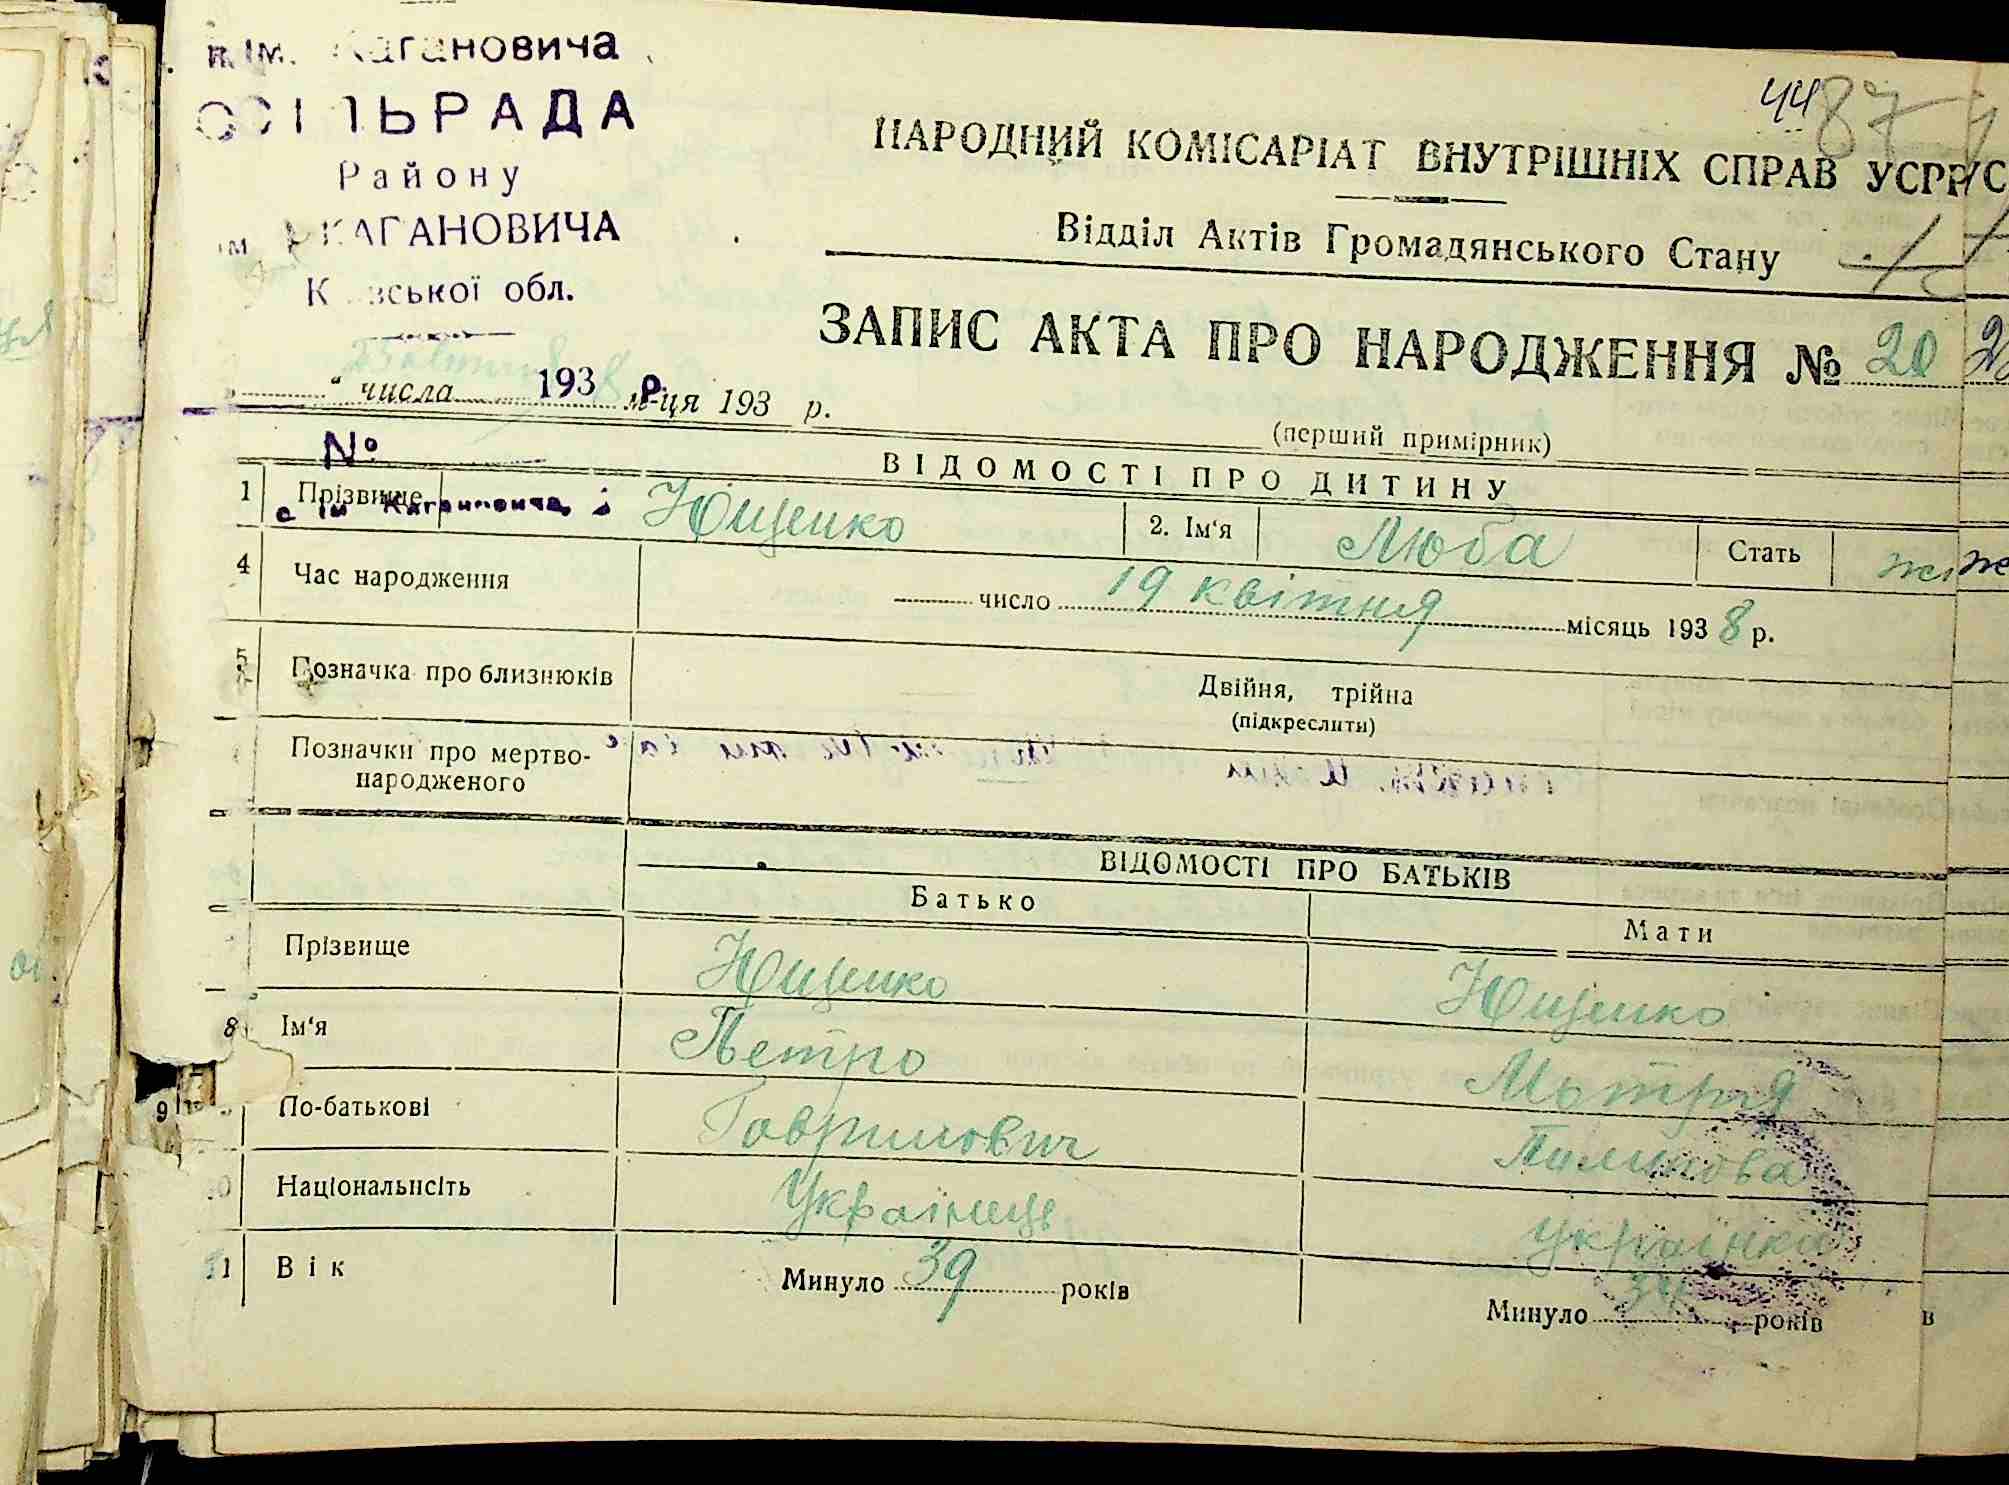 ім. Кагановича
СІЛЬРАДА
Району
ім. КАГАНОВИЧА
К вської обл.
193 р.
№
с ім Кагановича
44 87
НАРОДНИЙ КОМІСАРІАТ ВНУТРІШНІХ СПРАВ УСРР
Відділ Актів Громадянського Стану
ЗАПИС АКТА ПРО НАРОДЖЕННЯ № 20
" числа м-ця 193 р.
(перший примірник)
ВІДОМОСТІ ПРО ДИТИНУ
1 Прізвище Ющенко 2. Ім'я Люба Стать
4 Час народження число 19 квітня місяць 1938 р.
5 Позначка про близнюків Двійня, трійна
(підкреслити)
Позначки про мертво-
народженого
ВІДОМОСТІ ПРО БАТЬКІВ
Батько Мати
Прізвище Ющенко Ющенко
8 Ім'я Петро Мотря
9 По-батькові Гаврилович
10 Національність Українець Українка
11 Вік Минуло 39 років Минуло 34 років